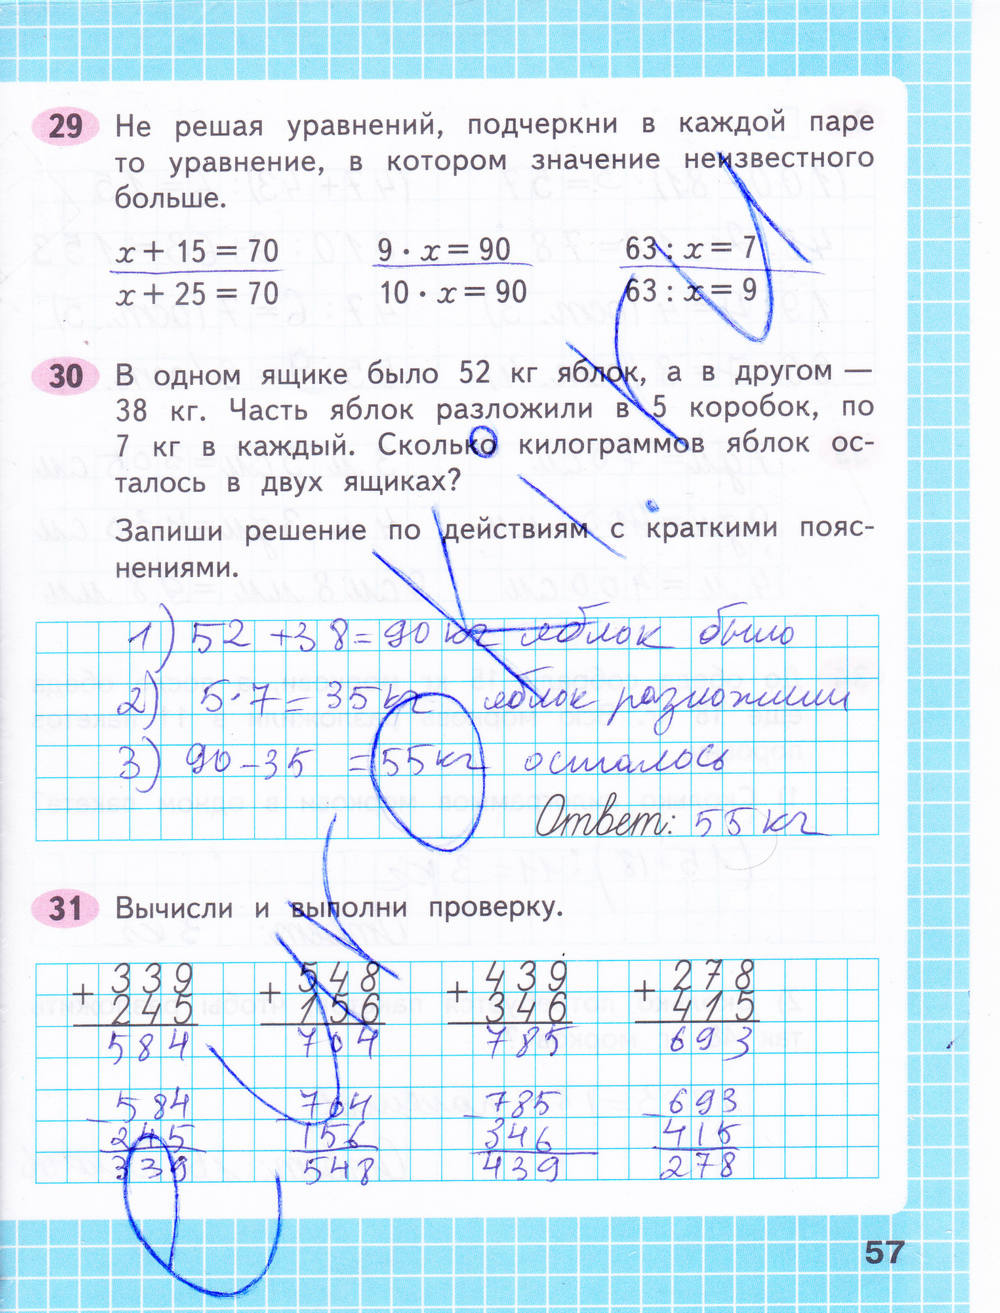 29 Не решая уравнений, подчеркни в каждой паре
то уравнение, в котором значение неизвестного
больше.
x + 15 = 70 9 · x = 90 63 : x = 7
x + 25 = 70 10 · x = 90 63 : x = 9
30 В одном ящике было 52 кг яблок, а в другом —
38 кг. Часть яблок разложили в 5 коробок, по
7 кг в каждый. Сколько килограммов яблок ос-
талось в двух ящиках?
Запиши решение по действиям с краткими пояс-
нениями.
1) 52 + 38 = 90 кг яблок было
2) 5 · 7 = 35 кг яблок разложили
3) 90 - 35 = 55 кг осталось
Ответ: 55 кг
31 Вычисли и выполни проверку.
339 548 439 278
+ 245 + 156 + 346 + 415
584 704 785 693
584 704 785 693
- 245 - 156 - 346 - 415
339 548 439 278
57